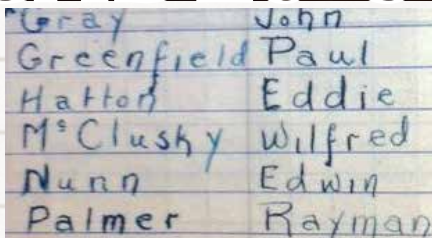 Gray John
Greenfield Paul
Hatton Eddie
McClusky Wilfred
Nunn Edwin
Palmer Rayman